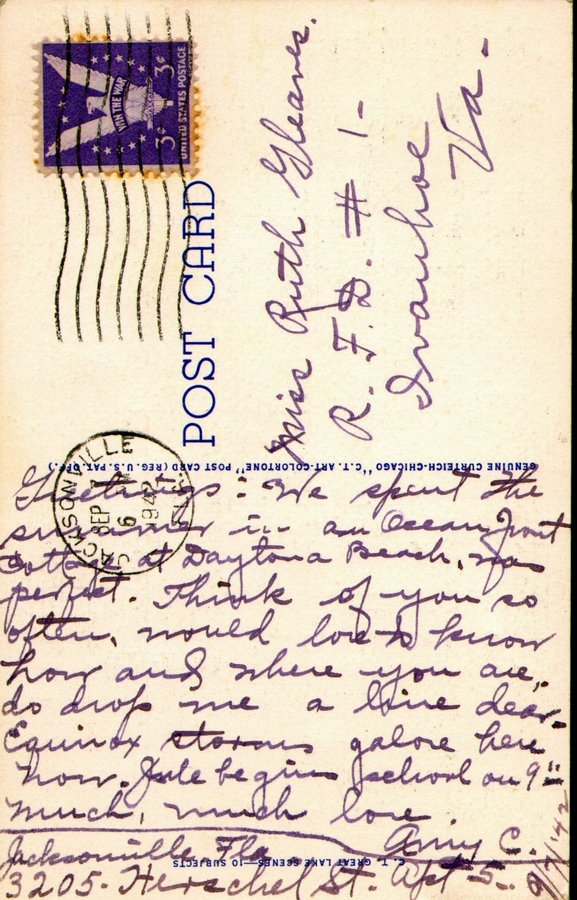 WIN THE WAR
3¢ 3¢
UNITED STATES POSTAGE
POST CARD
Miss Ruth Gleaves.
R. F. D. # 1-
Ivanhoe
Va-
GENUINE CURTEICH-CHICAGO "C. T. ART-COLORTONE" POST CARD (REG. U.S. PAT. OFF.)
JACKSONVILLE
SEP 7
6
1942
FLA.
Greetings: We spent the
summer in an Ocean front
cottage at Daytona Beach, was
perfect. Think of you so
often, would love to know
how and where you are,
do drop me a line dear-
Equinox storms galore here
now. begins school on 9th
much, much love
Amy C.
Jacksonville Fla
3205- Herschel St. Apt 5-
9/7/42
C. T. GREAT LAKE SCENES—10 SUBJECTS